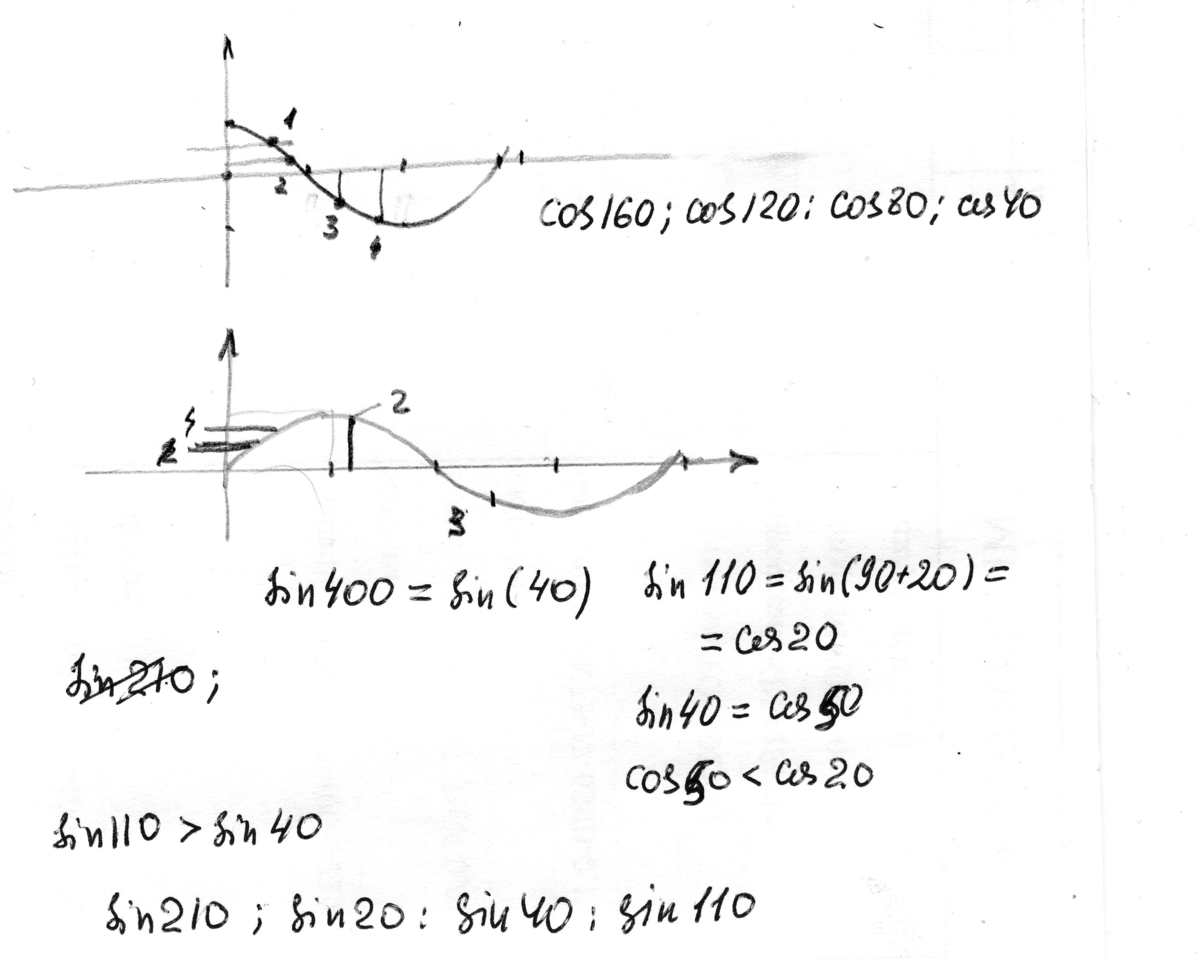 1
2
3
4
cos160; cos120: cos80; cos40
2
3
sin400 = sin(40)
sin 110 = sin(90+20) =
= cos20
sin210;
sin40 = cos50
cos50 < cos20
sin110 > sin40
sin210; sin20: sin40: sin110